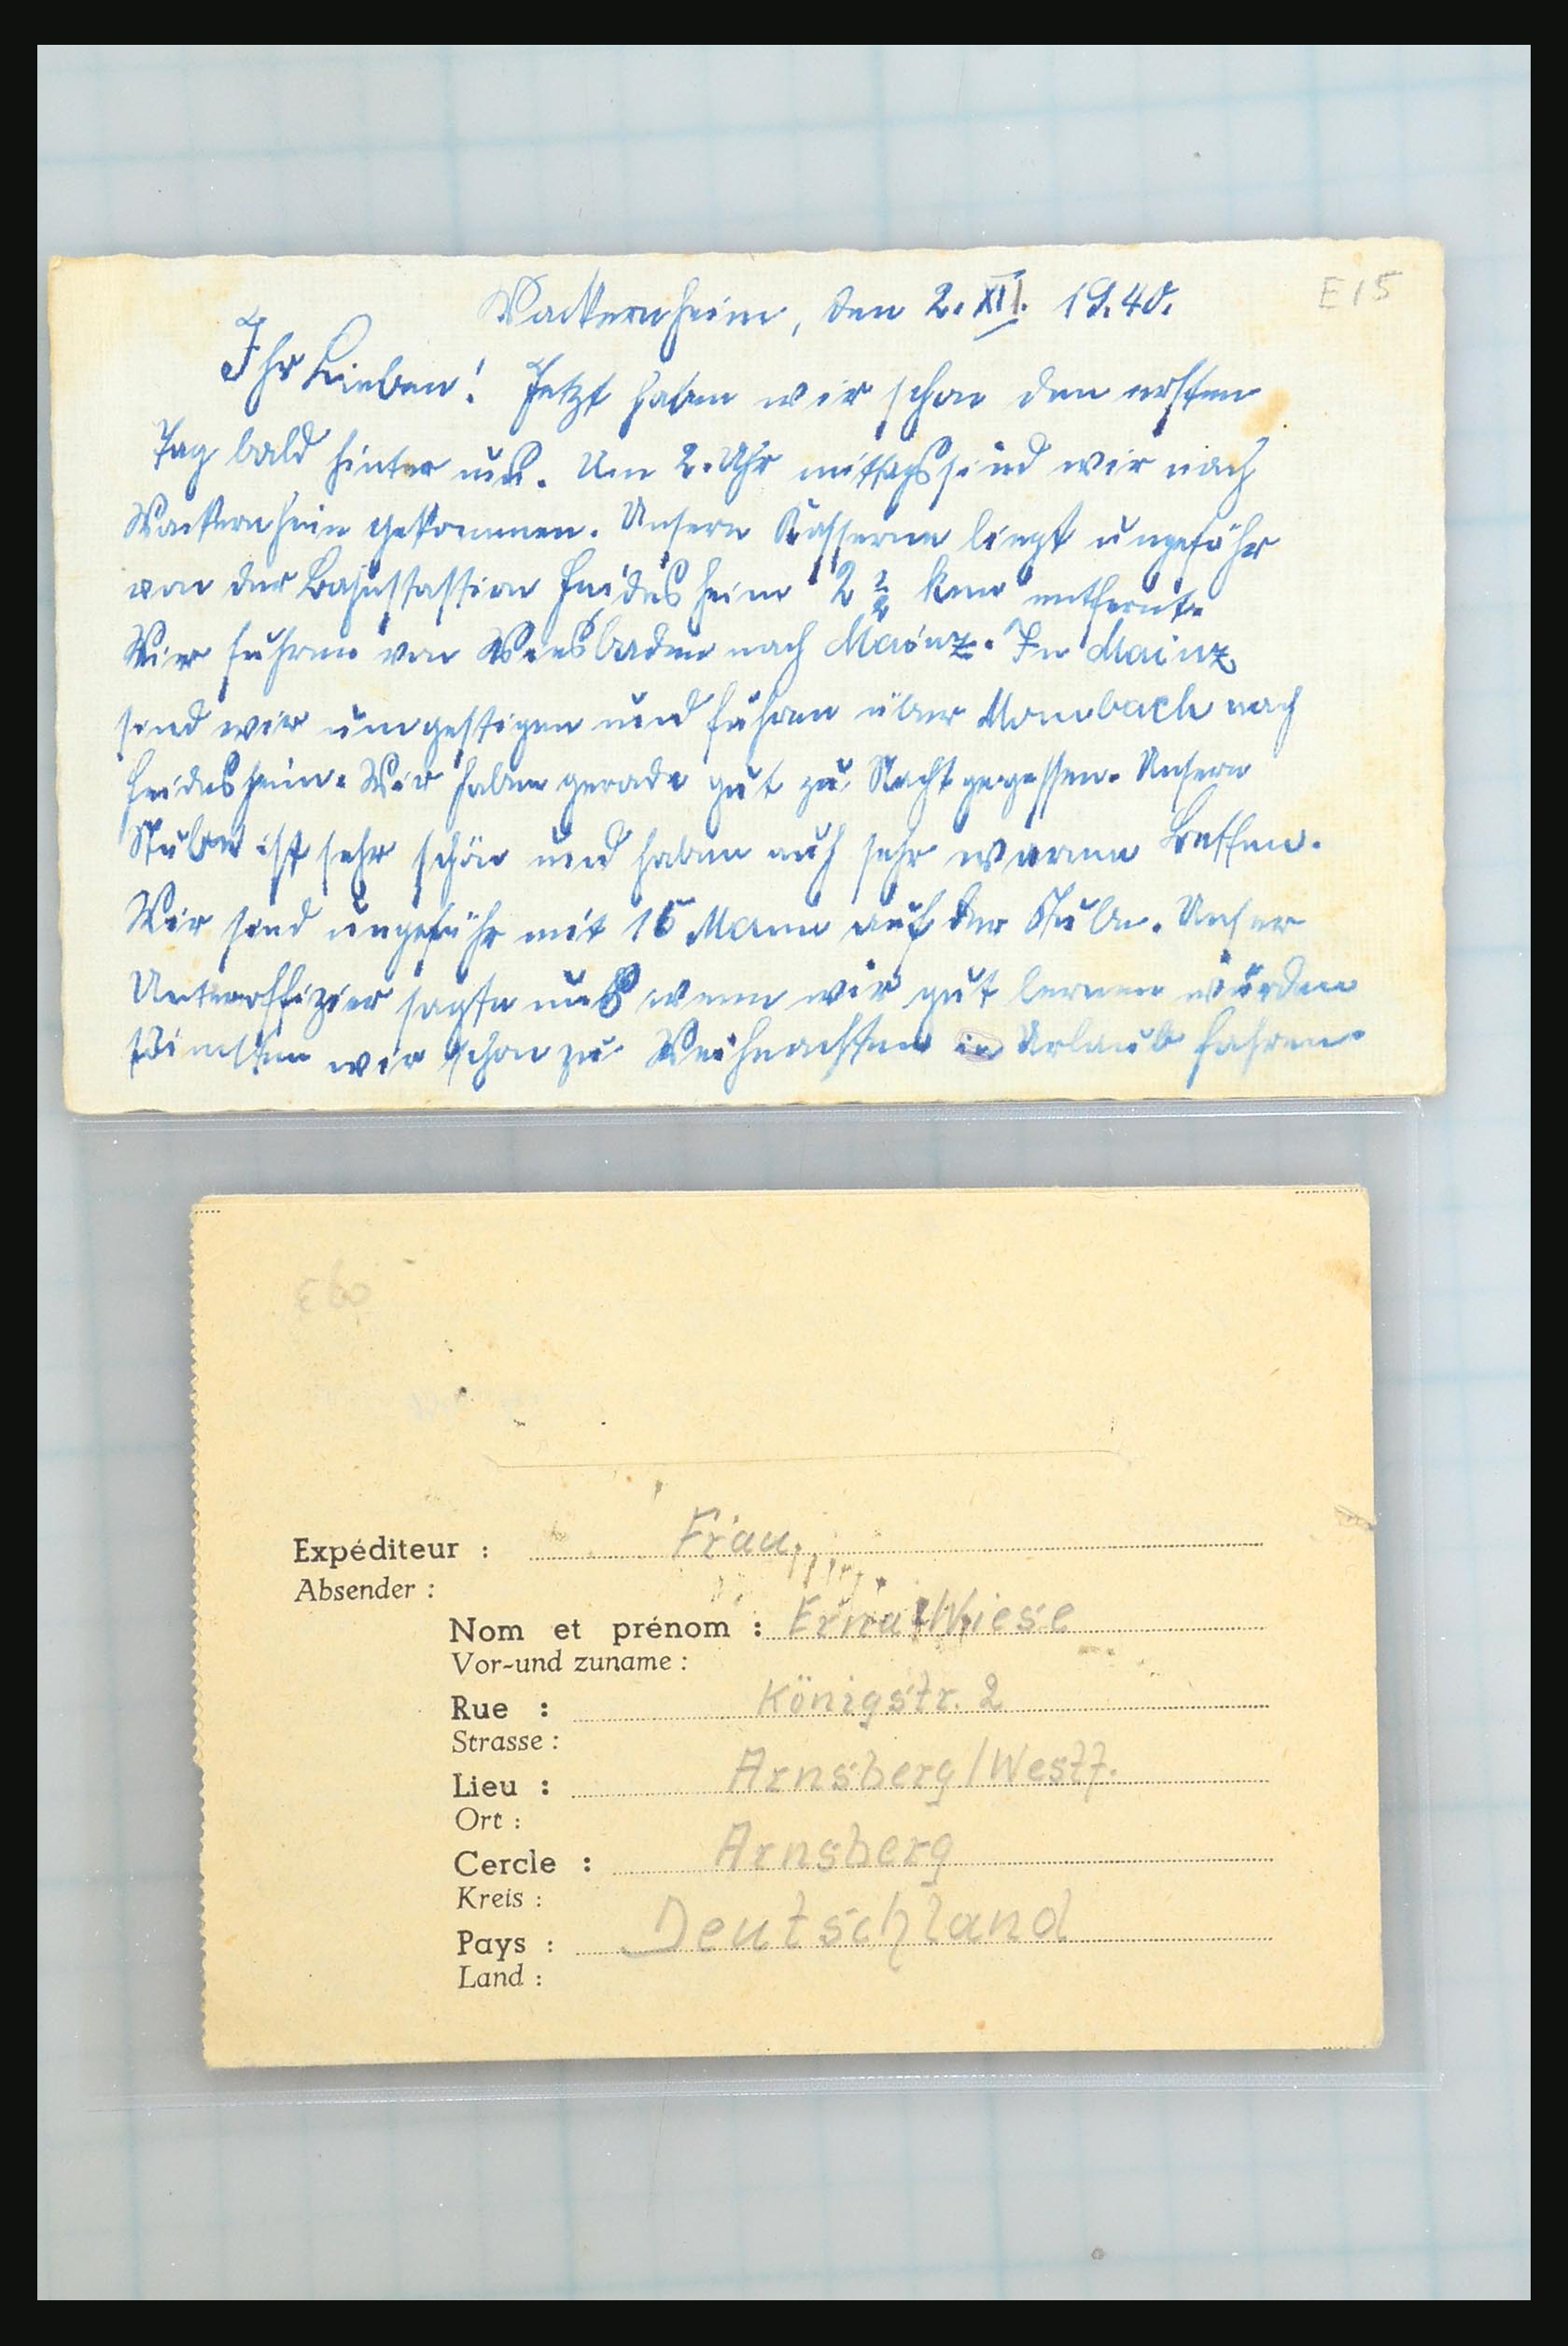 Wackernheim, den 2. XII. 19.40.
E15
Ihr Lieben! Jetzt haben wir schon den ersten
Tag bald hinter uns. Um 2. Uhr mittags sind wir nach
Wackernheim gekommen. Unsere Kasserne liegt ungefähr
von der Bahnstastion Heidesheim 2 1/2 km entfernt.
Wir fuhren von Wiesbaden nach Mainz. In Mainz
sind wir umgestigen und fuhren über Mombach nach
Heidesheim. Wir haben gerade gut zu Nacht gegessen. Unsere
Stube ist sehr schön und haben auch sehr warme Betten.
Wir sind ungefähr mit 15 Mann auf der Stube. Unser
Unteroffizier sagte uns wenn wir gut lernen würden
wir schon zu Weihnachten in Urlaub fahren.
Expéditeur : Frau.
Absender :
Nom et prénom : Erna Wiese
Vor-und zuname :
Rue : Königstr. 2
Strasse :
Lieu : Arnsberg/Westf.
Ort :
Cercle : Arnsberg
Kreis :
Pays : Deutschland
Land :